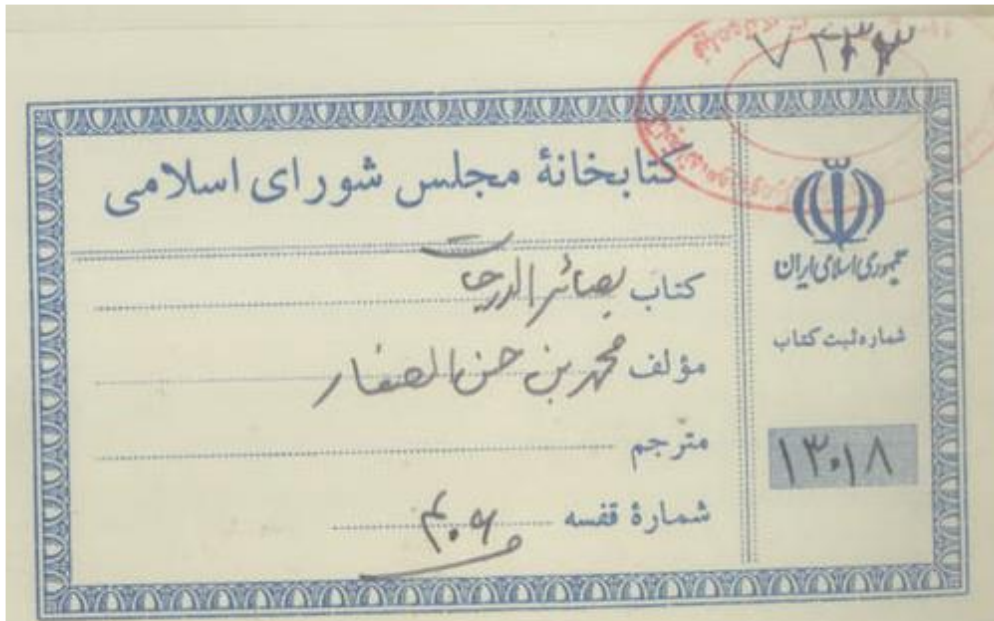 کتابخانهٔ مجلس شورای اسلامی
کتاب بصائر الدرجات
مؤلف محمد بن حسن الصفار
مترجم
شمارهٔ قفسه
جمهوری اسلامی ایران
شماره ثبت کتاب
۱۳۰۱۸